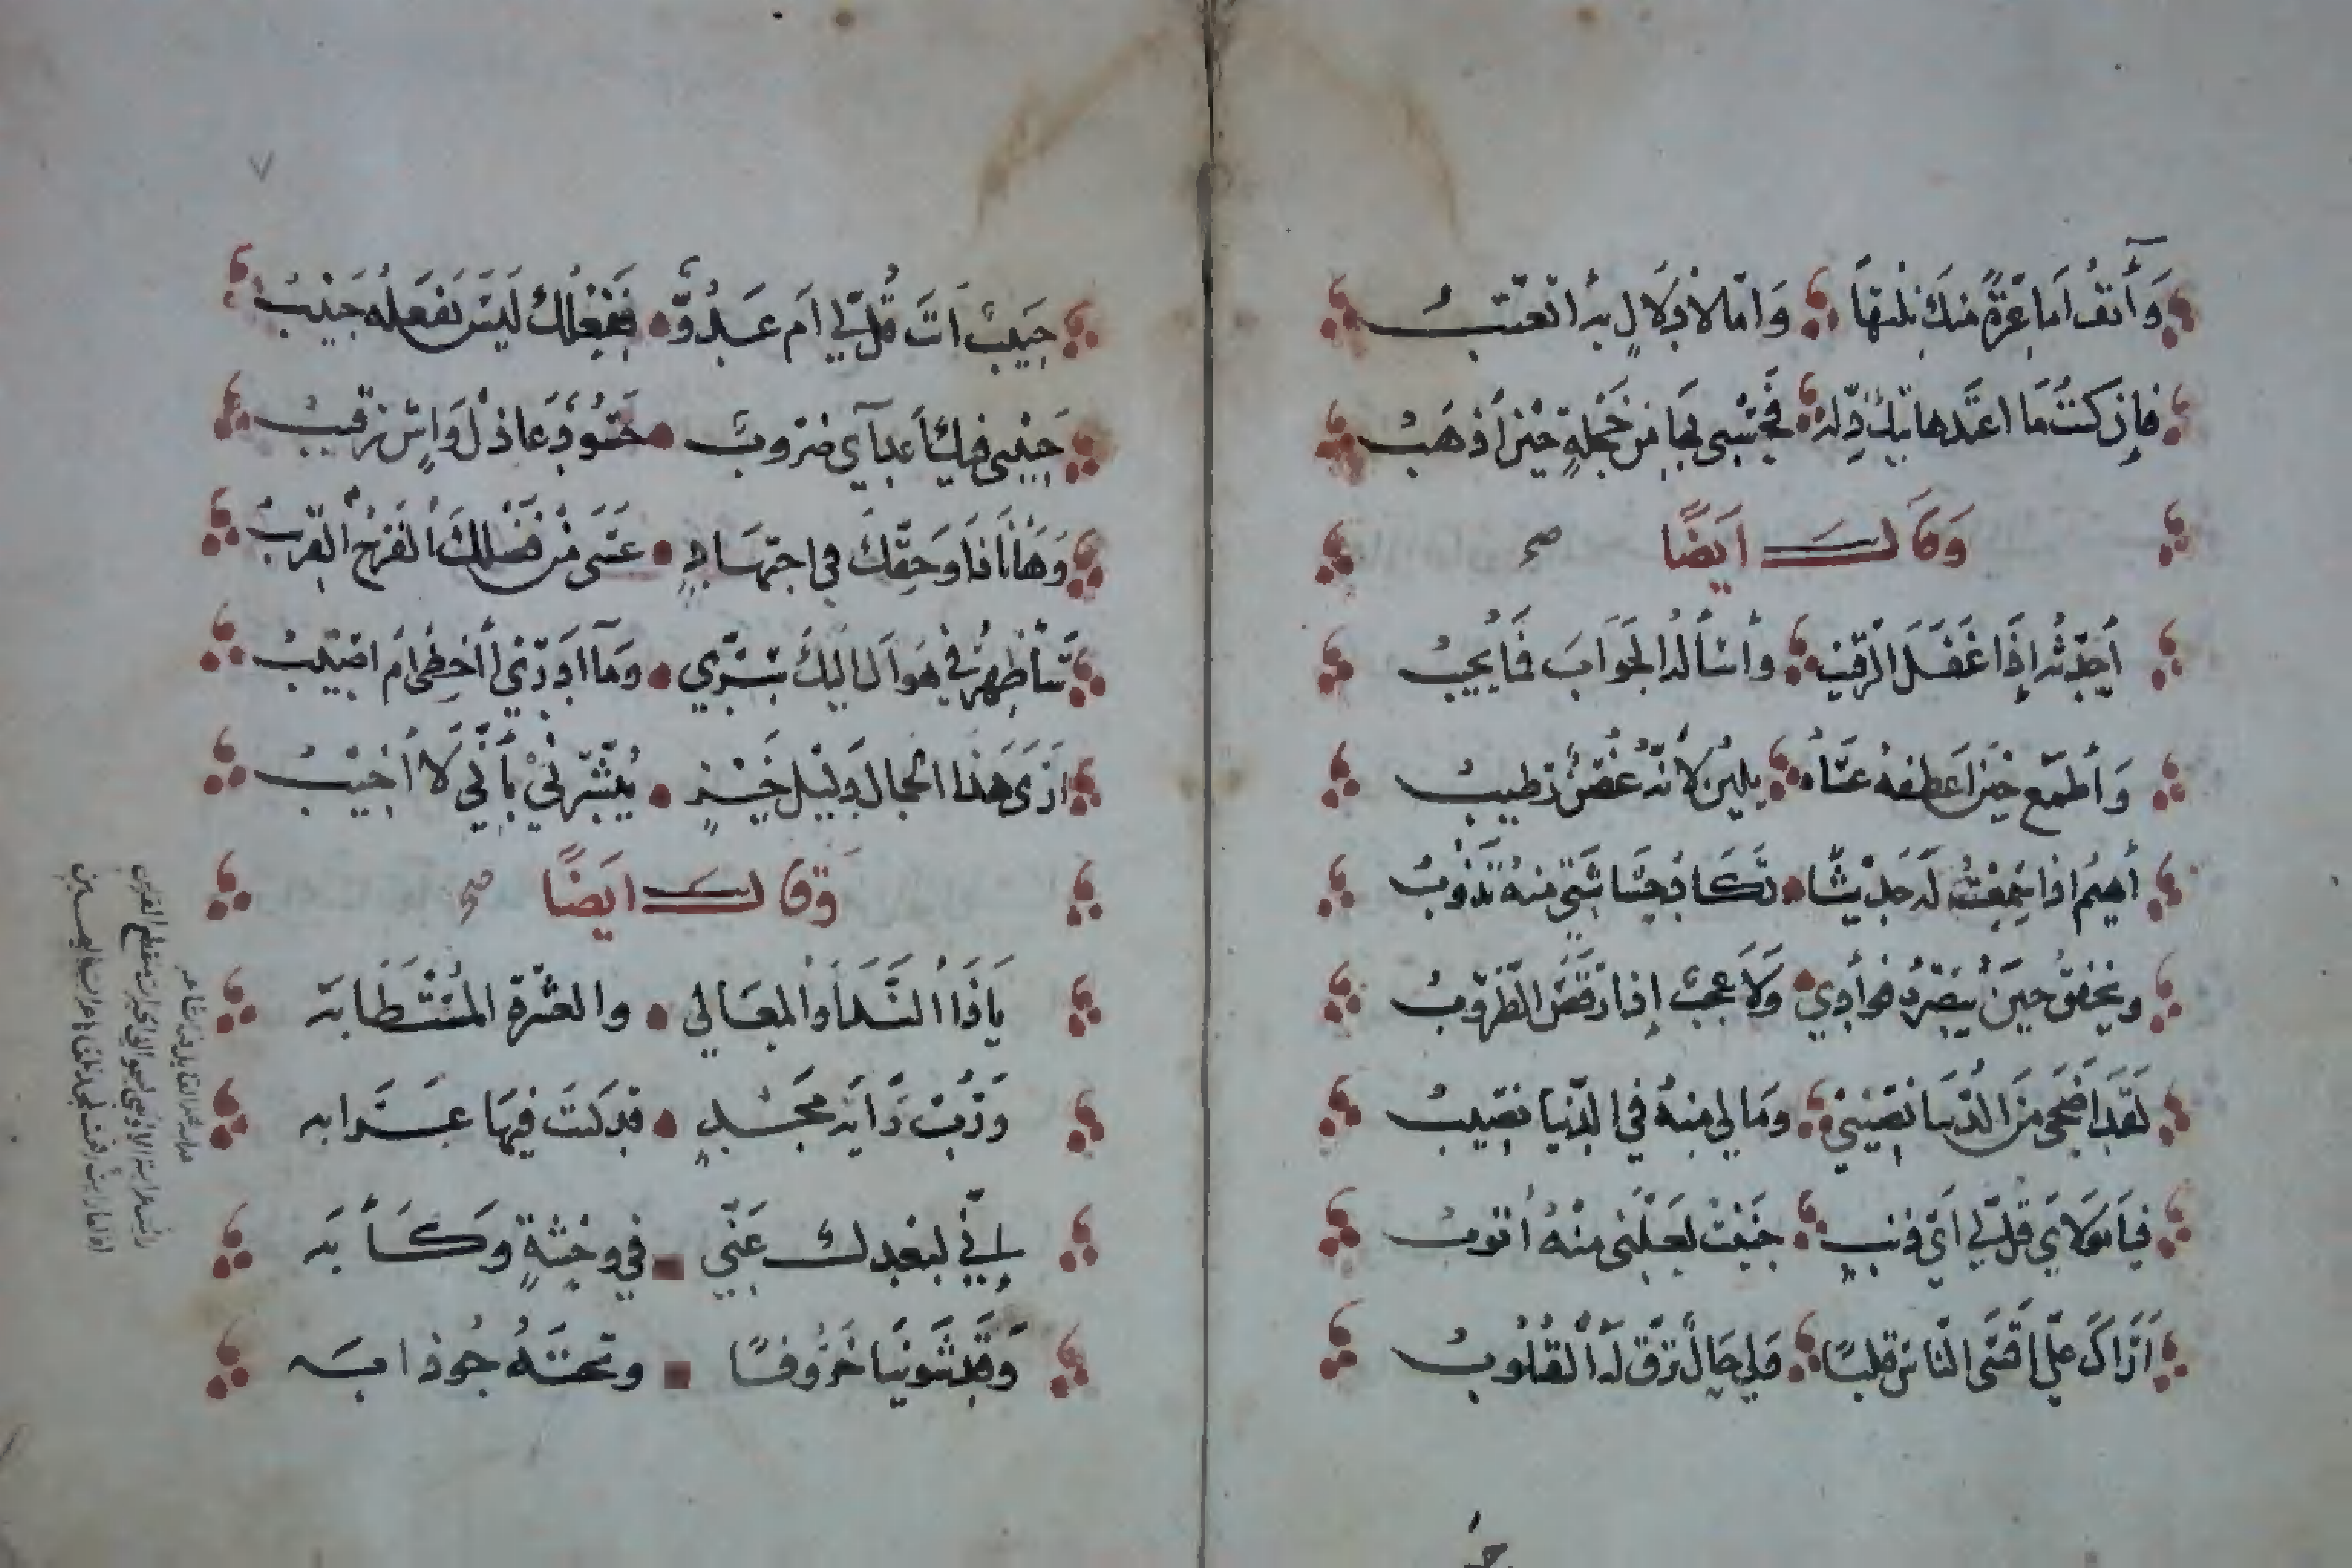 وَآنفُ اَمّا عِزّةً منكَ نِلتهَا وَامّا لاذلالٍ بهِ اتعتّبُ
فإن كنتُ مَا اعتدها لكَ زلّة فحَسْبي بها من خَجلةٍ حين أذهَبُ
وَقالــــ ايَضًا صح
أحَدّثُه إذَا غَفَلَ الرّقيبُ وأسْألهُ الجَوَابَ فمَا يُجيبُ
وَأطمَع حينَ اَعطفهُ عسَاهُ يلين لانّهُ غُصْنٌ رَطيبُ
أهيمُ اذا سَمِعْتُ لَه حَدِيْثًا تكَادُ حشَاشَتي منهُ تَذُوبُ
ويخفقُ حينَ يُبصِرُهُ فُؤادي وَلاَ عجبٌ إذا رَقَصَ الطَّرُوبُ
لقَد اَضحَى مِنَ الدّنيَا نصِيبي وَما لي منهُ في الدّنيا نصِيبُ
فيَا مَولاَي قل لي اَيّ ذنبٍ جَنَيتُ لعَلّني مِنْهُ أتوبُ
اَرَاكَ عَليّ اقسَى النّاس قلبًا وَلي حَالٌ تَرِقّ لَهُ القُلُوبُ
حَبيبٌ اَنتَ قُل لي اَم عَدُوٌّ ففِعْلكَ لَيسَ يَفعَلُه حَبيْبُ
حَبيْبي فيكَ اَعدآي ضرُوبٌ حَسُودٌ عَاذلٌ وَاشٍ رَقيبُ
وَهَا أنَا ذا وَحقّكَ في اجتهَادٍ عَسَى مِن فضلكَ الفَرَجُ القريبُ
سَأظهِرُ في هَوَاكَ اليكَ سِرّي وَمآ ادري أأخطي اَم اصيبُ
اَرَى هَذا الجمالَ دَليلَ خَيْرٍ يُبشّرنيْ بأنّي لاَ أخيْبُ
وَقالــــ ايَضًا صح
يَا ذَا النَّدَا وَالمعَالي والعشْرةِ المُسْتَطَابَه
وَرُبّ رَايَه مَجْدٍ قد كَنتَ فيهَا عَرَابه
إنّي لبُعْدِكَ عَنّي في وحْشَةٍ وَكآبَه
وَقَد شَوَينَا خَرُوفًا وتحتَهُ جُوذابَه